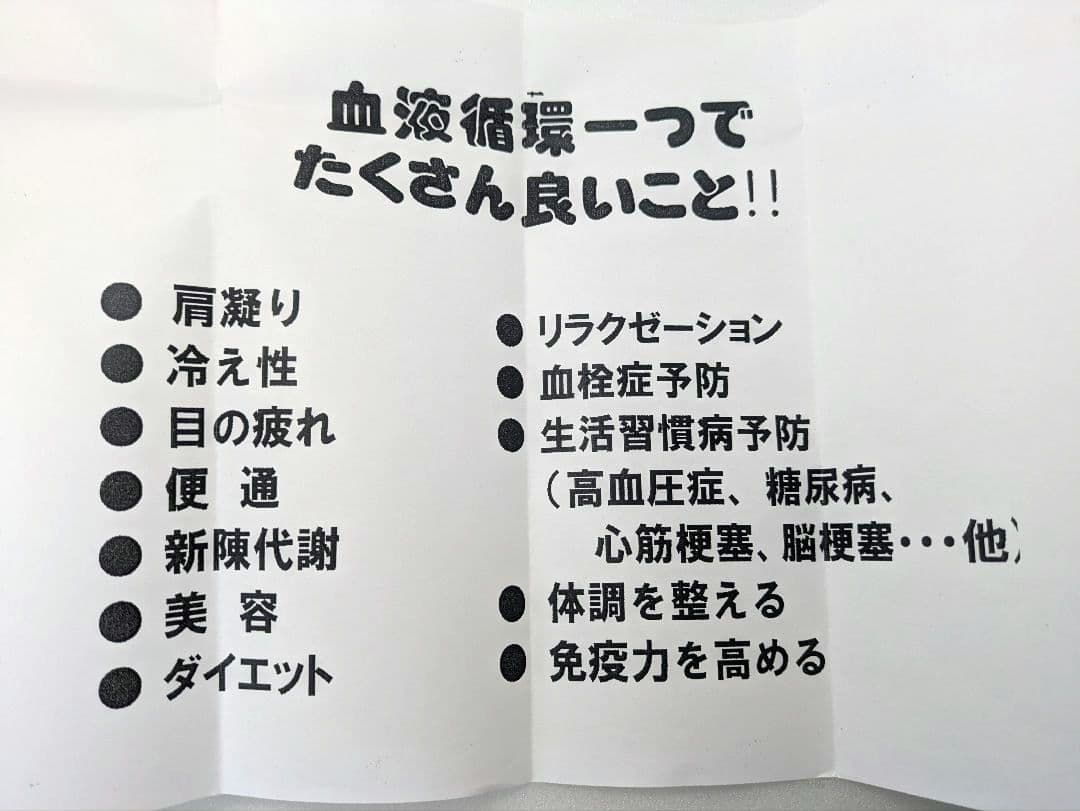 血液循環一つで
たくさん良いこと!!
● 肩凝り
● 冷え性
● 目の疲れ
● 便　通
● 新陳代謝
● 美　容
● ダイエット
● リラクゼーション
● 血栓症予防
● 生活習慣病予防
（高血圧症、糖尿病、
心筋梗塞、脳梗塞・・・他）
● 体調を整える
● 免疫力を高める